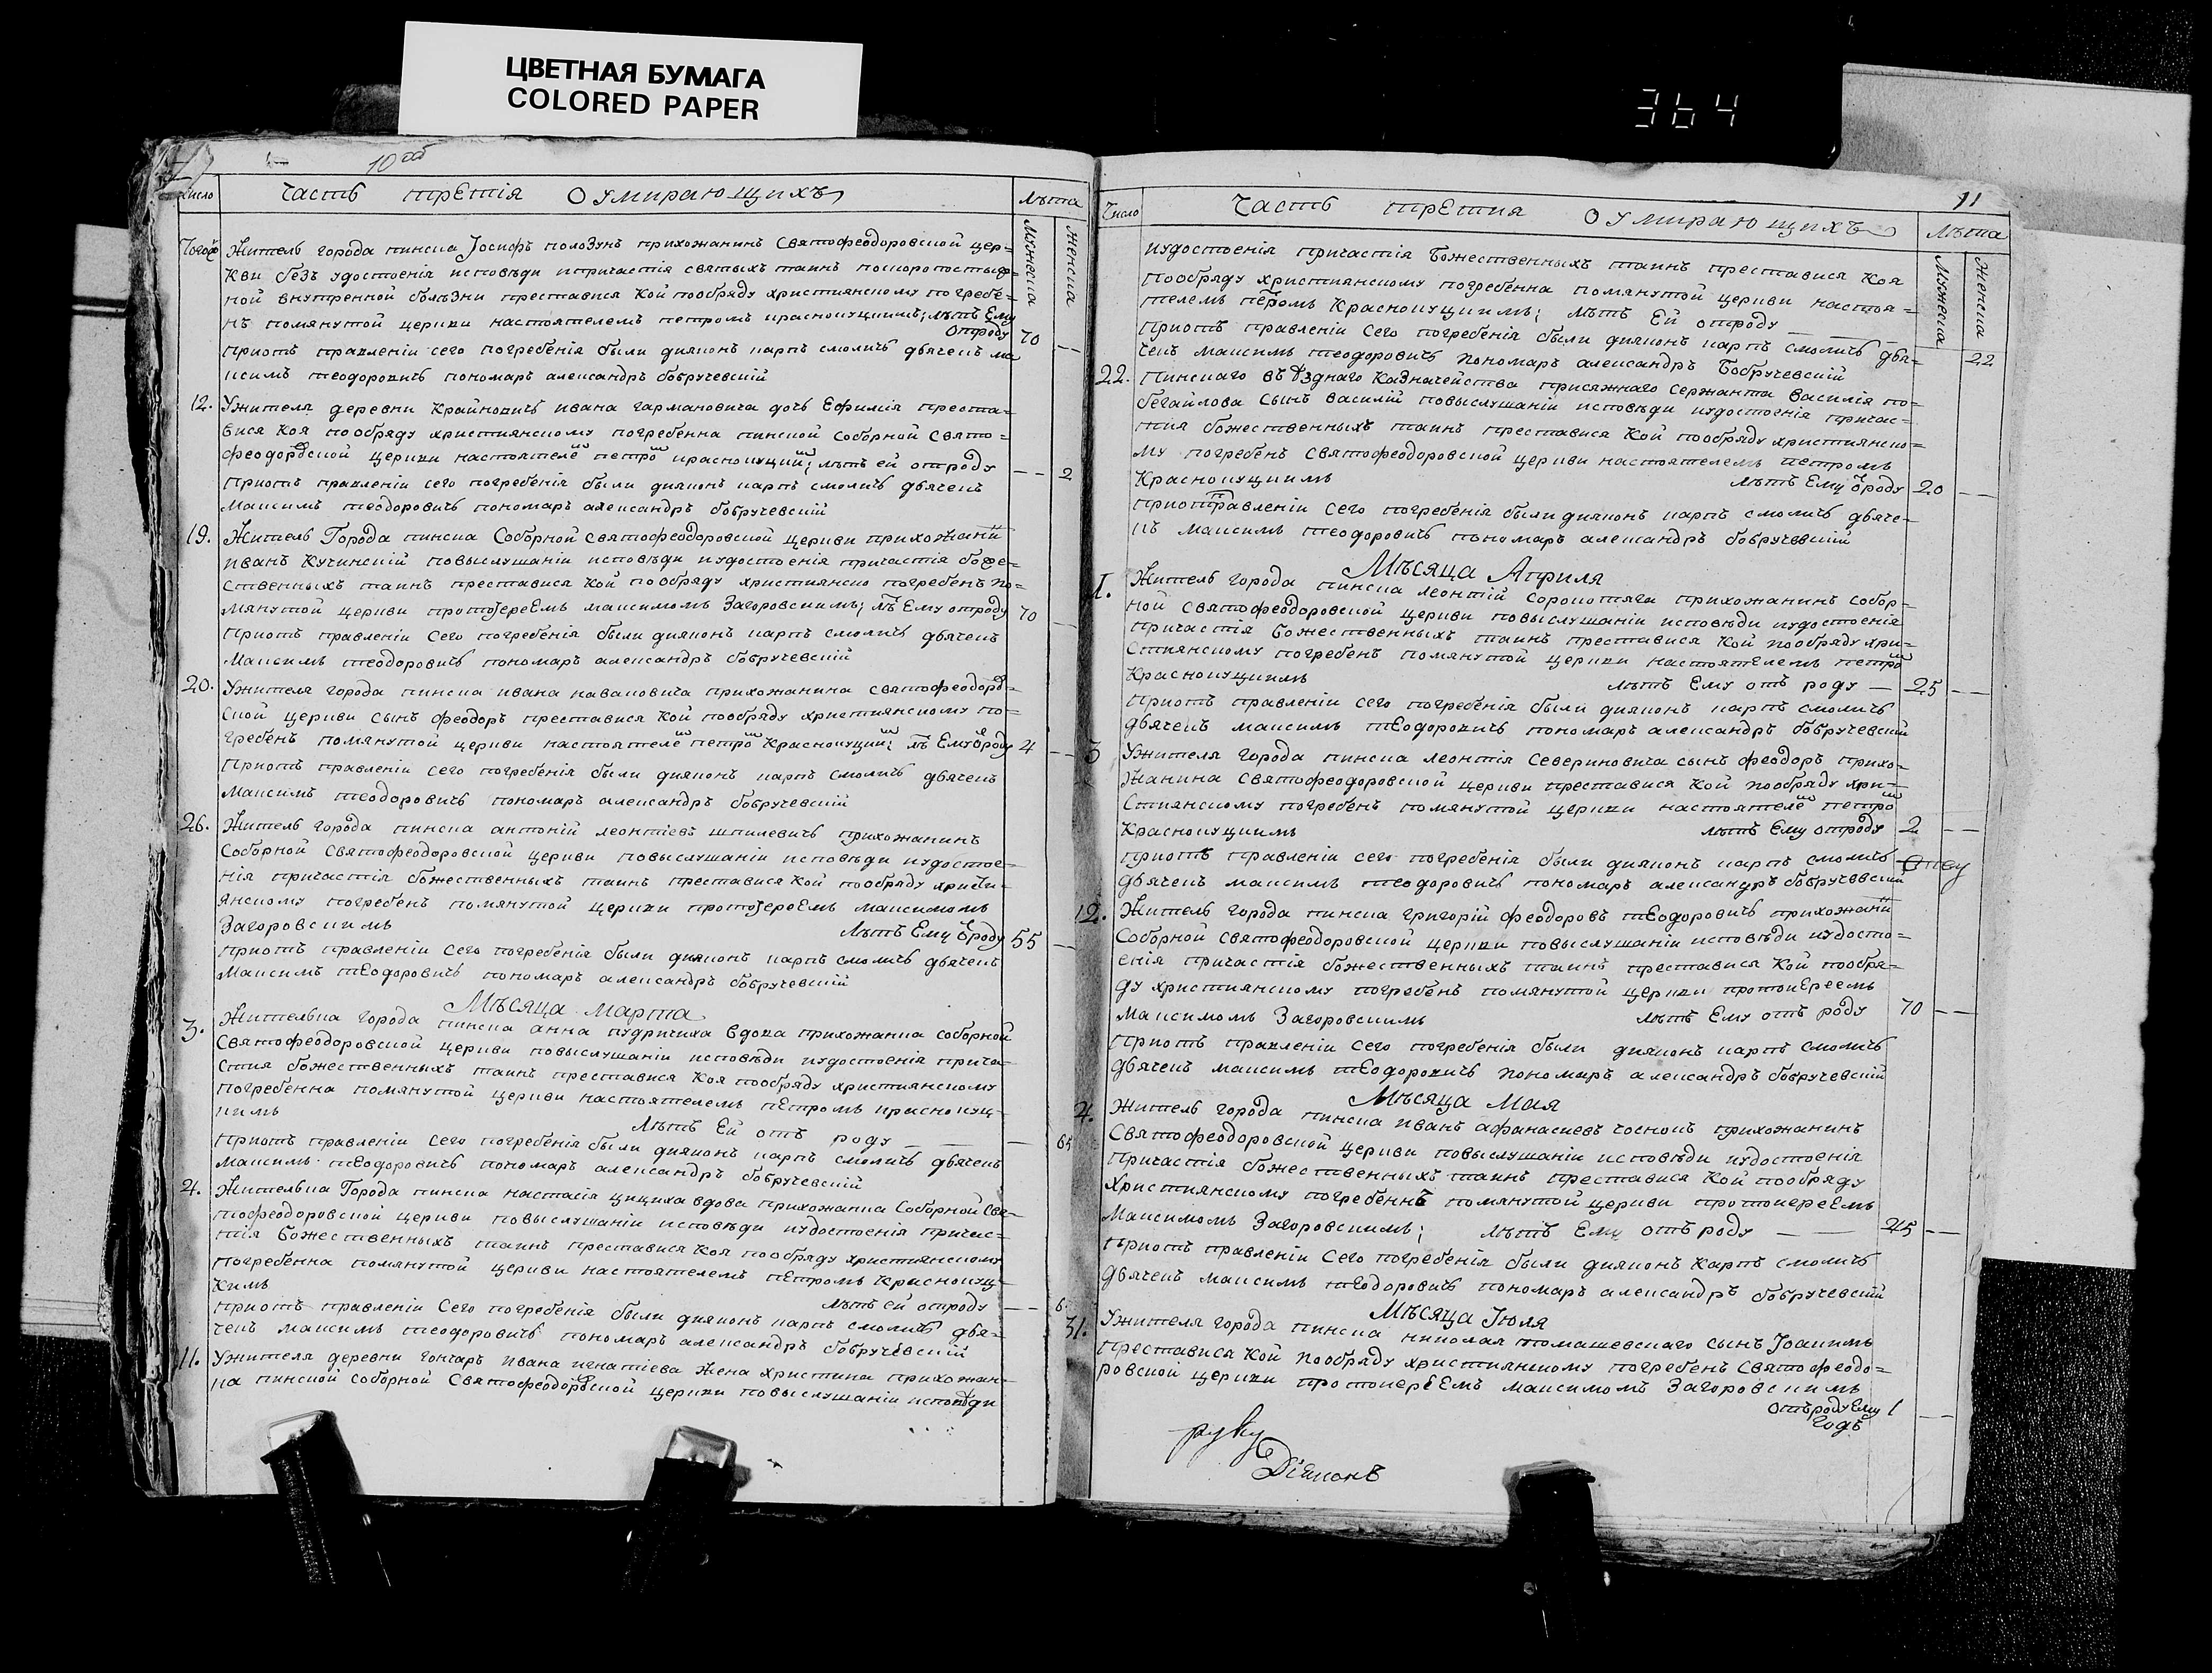 ЦВЕТНАЯ БУМАГА
COLORED PAPER
364
10 об
Число Часть третія О умирающихъ Лѣта
Мужеска Женска
Житель города пинска Іосифъ полозунъ прихожанинъ Святофеодоровской цер=
кви безъ удостоенія исповѣди ипричастія святыхъ таинъ поскоропостыж=
ной внутренной болѣзни преставися Кой пообряду християнскому погребе=
нъ помянутой церкви настоятелемъ петромъ красноцуцкимъ; лѣтъ Ему
отроду 70 —
приотъ правленіи сего погребенія были дияконъ карпъ смоличъ дьячекъ ма
ксимъ теодоровичъ пономаръ александръ бобручевскій
12. Ужителя деревни Крайновичъ ивана гармановича дочь Ефимія преста=
вися Коя пообряду християнскому погребенна пинской соборной свято=
феодоровской церкви настоятелем петром ; лѣтъ ей отроду — — 2
Приотъ правленіи сего погребенія были дияконъ карпъ смоличъ дьячекъ
Максимъ теодоровичъ пономаръ александръ бобручевскій
19. Житель Города пинска Соборной святофеодоровской церкви прихожанин
иванъ Кучинскій повыслушаніи исповѣди иудостоенія причастія боже=
ственныхъ таинъ преставися Кой пообряду християнско погребенъ по=
мянутой церкви протоЈереЕмъ максимомъ Загоровскимъ; лѣ Ему отроду 70 —
Приотъ правленіи Сего погребенія были дияконъ карпъ смоличъ дьячекъ
Максимъ теодоровичъ пономаръ александръ бобручевскій
20. Ужителя города пинска ивана прихожанина святофеодоров=
ской церкви сынъ феодоръ преставися Кой пообряду християнскому по=
гребенъ помянутой церкви настоятелем петром ; лѣ Ему роду 4 —
Приотъ правленіи сего погребенія были дияконъ карпъ смоличъ дьячекъ
Максимъ теодоровичъ пономаръ александръ бобручевскій
26. Житель города пинска антоній леонтіевъ шпилевичъ прихожанинъ
Соборной Святофеодоровской церкви повыслушаніи исповѣди иудостое=
нія причастія божественныхъ таинъ преставися Кой пообряду христи=
янскому погребенъ помянутой церкви протоЈереЕмъ максимомъ
Загоровскимъ Лѣтъ Ему роду 55 —
приотъ правленіи Сего погребенія были дияконъ карпъ смоличъ дьячекъ
Максимъ тЕодоровичъ пономаръ александръ бобручевскій
Мѣсяца марта
3. Жителька города пинска анна кудричиха вдова прихожанка соборной
Святофеодоровской церкви повыслушаніи исповѣди иудостоенія прича=
стия божественныхъ таинъ преставися Коя пообряду християнскому
погребенна помянутой церкви настоятелемъ пЕтромъ красноцуц=
кимъ Лѣтъ Ей отъ роду — — — 65
приотъ правленіи Сего погребенія были дияконъ карпъ смоличъ дьячекъ
Максимъ тЕодоровичъ пономаръ александръ бобручевскій
4. Жителька Города пинска настасія цициха вдова прихожанка Соборной Свя=
тофеодоровской церкви повыслушаніи исповѣди иудостоенія причас=
тія Божественныхъ таинъ преставися Коя пообряду християнскому
погребенна помянутой церкви настоятелемъ пЕтромъ Красноцуц=
Кимъ Лѣтъ ей отроду — — 6
приотъ правленіи Сего погребенія были дияконъ карпъ смоличъ дья=
чекъ максимъ теодоровичъ пономаръ александръ бобручевскій
11. Ужителя деревни гончаръ ивана игнатіева жена христина прихожан=
ка пинской соборной Святофеодоровской церкви повыслушаніи исповѣди
11
Число Часть третия О умирающихъ Лѣта
Мужеска Женска
иудостоенія причастія Божественныхъ таинъ преставися Коя
пообряду християнскому погребенна помянутой церкви настоя=
телемъ петромъ Красноцуцкимъ; лѣтъ Ей отроду — — 22
приотъ правленіи сего погребенія были дияконъ карпъ смоличъ дья=
чекъ максимъ теодоровичъ пономаръ александръ Бобручевскій
22. Пинскаго въѣзднаго Казначейства присяжнаго сержанта василія по=
бегайлова сынъ василій повыслушаніи исповѣди иудостоенія причас=
тия божественныхъ таинъ преставися Кой пообряду християнско=
му погребенъ святофеодоровской церкви настоятелемъ петромъ
Красноцуцкимъ лѣтъ Ему роду 20 —
приотправленіи сего погребенія были дияконъ карпъ смоличъ дьяче=
къ максимъ теодоровичъ пономаръ александръ бобручевскій
Мѣсяца Априля
1. Житель города пинска леонтій сорокотяга прихожанинъ собор=
ной святофеодоровской церкви повыслушаніи исповѣди иудостоенія
причастія божественныхъ таинъ преставися Кой пообряду хри=
стиянскому погребенъ помянутой церкви настоятелемъ петром
Красноцуцкимъ лѣтъ Ему отъ роду — 25 —
приотъ правленіи сего погребенія были дияконъ карпъ смоличъ
дьячекъ максимъ тЕодоровичъ пономаръ александръ бобручевскій
3 Ужителя города пинска леонтія Севериновича сынъ феодоръ прихо=
жанина святофеодоровской церкви преставися Кой пообряду хри=
стиянскому погребенъ помянутой церкви настоятелем петром
Красноцуцкимъ лѣтъ Ему отроду 2 —
приотъ правленіи сего погребенія были дияконъ карпъ смоличъ
дьячекъ максимъ теодоровичъ пономаръ александръ бобручевскій
12. Житель города пинска григорій феодоровъ тЕодоровичъ прихожанин
Соборной святофеодоровской церкви повыслушаніи исповѣди иудосто=
енія причастія божественныхъ таинъ преставися Кой пообря=
ду християнскому погребенъ помянутой церкви протоиереемъ
Максимомъ Загоровскимъ лѣтъ Ему отъ роду 70 —
Приотъ правленіи сего погребенія были дияконъ карпъ смоличъ
дьячекъ максимъ тЕодоровичъ пономаръ александръ бобручевскій
Мѣсяца Мая
4. Житель города пинска иванъ афанасиевъ прихожанинъ
Святофеодоровской церкви повыслушаніи исповѣди иудостоенія
причастія божественныхъ таинъ преставися Кой пообряду
християнскому погребеннъ помянутой церкви протоиереЕмъ
Максимомъ Загоровскимъ; лѣтъ Ему отъ роду — — 45 —
приотъ правленіи Сего погребенія были дияконъ Карпъ смоличъ
дьячекъ максимъ тЕодоровичъ пономаръ александръ бобручевскій
Мѣсяца Јюля
31. Ужителя города пинска николая томашевскаго сынъ Јоакимъ
преставися Кой пообряду християнскому погребенъ Святофеодо=
ровской церкви протоиереЕмъ максимомъ Загоровскимъ
отъ роду Ему 1 —
годъ
руку
Діяконъ